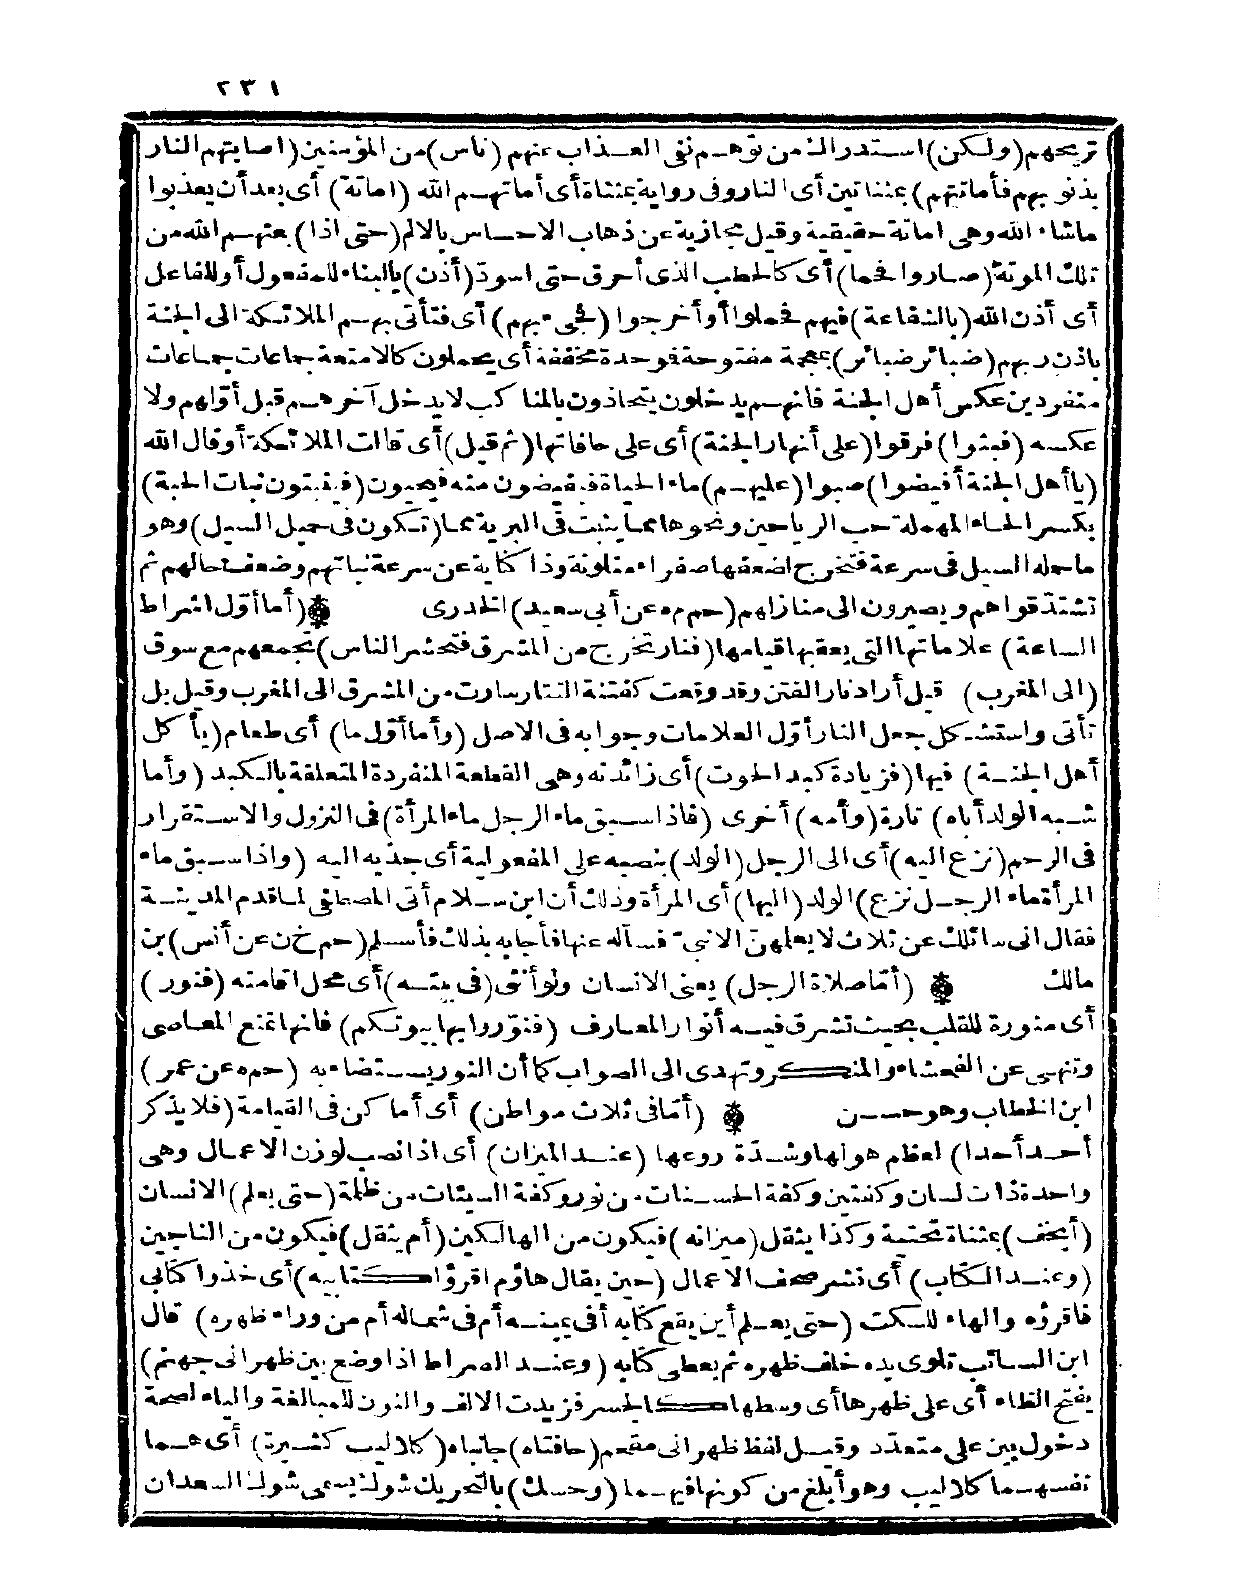 ٢٣١
تريحهم (ولكن) استدراك من توهم نفى العذاب عنهم (ناس) من المؤمنين (اصابتهم النار
بذنوبهم فأماتتهم) بمثناتين أى النار وفى رواية بمثناة أى أماتهم الله (اماتة) أى بعد أن يعذبوا
ماشاء الله وهى اماتة حقيقية وقيل مجازية عن ذهاب الاحساس بالالم (حتى اذا) بعثهم الله من
تلك الموتة (صاروا فحما) أى كالحطب الذى أحرق حتى اسودّ (أذن) بالبناء للمفعول أو للفاعل
أى أذن الله (بالشفاعة) فيهم فحملوا أو أخرجوا (فجىء بهم) أى فتأتى بهم الملائكة الى الجنة
باذن ربهم (ضبائر ضبائر) بمعجمة مفتوحة فوحدة مخففة أى يحملون كالامتعة جماعات جماعات
متفردين عكس أهل الجنة فانهم يدخلون يتحاذون بالمناكب لا يدخل آخرهم قبل أوّلهم ولا
عكسه (فبثوا) فرقوا (على أنهار الجنة) أى على حافاتها (ثم قيل) أى قالت الملائكة أو قال الله
(يا أهل الجنة أفيضوا) صبوا (عليهم) ماء الحياة فيفيضون منه فيحيون (فينبتون نبات الحبة)
بكسر الحاء المهملة حب الرياحين ونحوها مما ينبت فى البرية مما (تكون فى حميل السيل) وهو
ما حمله السيل فى سرعة فتخرج لضعفها صفراء متلوية وذا كناية عن سرعة نباتهم وضعف حالهم ثم
تشتدّ قواهم ويصيرون الى منازلهم (حم م ه عن أبى سعيد) الخدرى ۞ (أما أوّل اشراط
الساعة) علاماتها التى يعقبها قيامها (فنار تخرج من المشرق فتحشر الناس) تجمعهم مع سوق
(الى المغرب) قيل أراد نار الفتن وقد وقعت كفتنة التتار سارت من المشرق الى المغرب وقيل بل
تأتى واستشكل جعل النار أوّل العلامات وجوابه فى الاصل (وأما أوّل ما) أى طعام (يأكل
أهل الجنة) فيها (فزيادة كبد الحوت) أى زائدته وهى القطعة المنفردة المتعلقة بالكبد (وأما
شبه الولد أباه) تارة (وأمه) أخرى (فاذا سبق ماء الرجل ماء المرأة) فى النزول والاستقرار
فى الرحم (نزع اليه) أى الى الرجل (الولد) بنصبه على المفعولية أى جذبه اليه (واذا سبق ماء
المرأة ماء الرجل نزع) الولد (اليها) أى المرأة وذلك أن ابن سلام أتى المصطفى لما قدم المدينة
فقال انى سائلك عن ثلاث لا يعلمهنّ الا نبىّ فسأله عنها فأجابه بذلك فأسلم (حم خ ن عن أنس) بن
مالك ۞ (أمّا صلاة الرجل) يعنى الانسان ولو أنثى (فى بيته) أى محل اقامته (فنور)
أى منورة للقلب بحيث تشرق فيه أنوار المعارف (فنوّروا بها بيوتكم) فانها تمنع المعاصى
وتنهى عن الفحشاء والمنكر وتهدى الى الصواب كما أن النور يستضاء به (حم ه عن عمر)
ابن الخطاب وهو حسن ۞ (أمّا فى ثلاث مواطن) أى أماكن فى القيامة (فلا يذكر
أحد أحدا) لعظم هولها وشدّة روعها (عند الميزان) أى اذا نصب لوزن الاعمال وهى
واحدة ذات لسان وكفتين وكفة الحسنات من نور وكفة السيئات من ظلمة (حتى يعلم) الانسان
(أيخف) بمثناة تحتية وكذا يثقل (ميزانه) فيكون من الهالكين (أم يثقل) فيكون من الناجين
(وعند الكتاب) أى نشر صحف الاعمال (حين يقال هاؤم اقرؤا كتابيه) أى خذوا كتابى
فاقرؤه والهاء للسكت (حتى يعلم أين يقع كتابه أفى يمينه أم فى شماله أم من وراء ظهره) قال
ابن السائب تلوى يده خلف ظهره ثم يعطى كتابه (وعند الصراط اذا وضع بين ظهرانى جهنم)
بفتح الظاء أى على ظهرها أى وسطها كالجسر فزيدت الالف والنون للمبالغة والياء لصحة
دخول بين على متعدّد وقيل لفظ ظهرانى مقحم (حافتاه) جانباه (كلاليب كثيرة) أى هما
نفسهما كلاليب وهو أبلغ من كونها فيهما (وحسك) بالتحريك شوك يسمى شوك السعدان